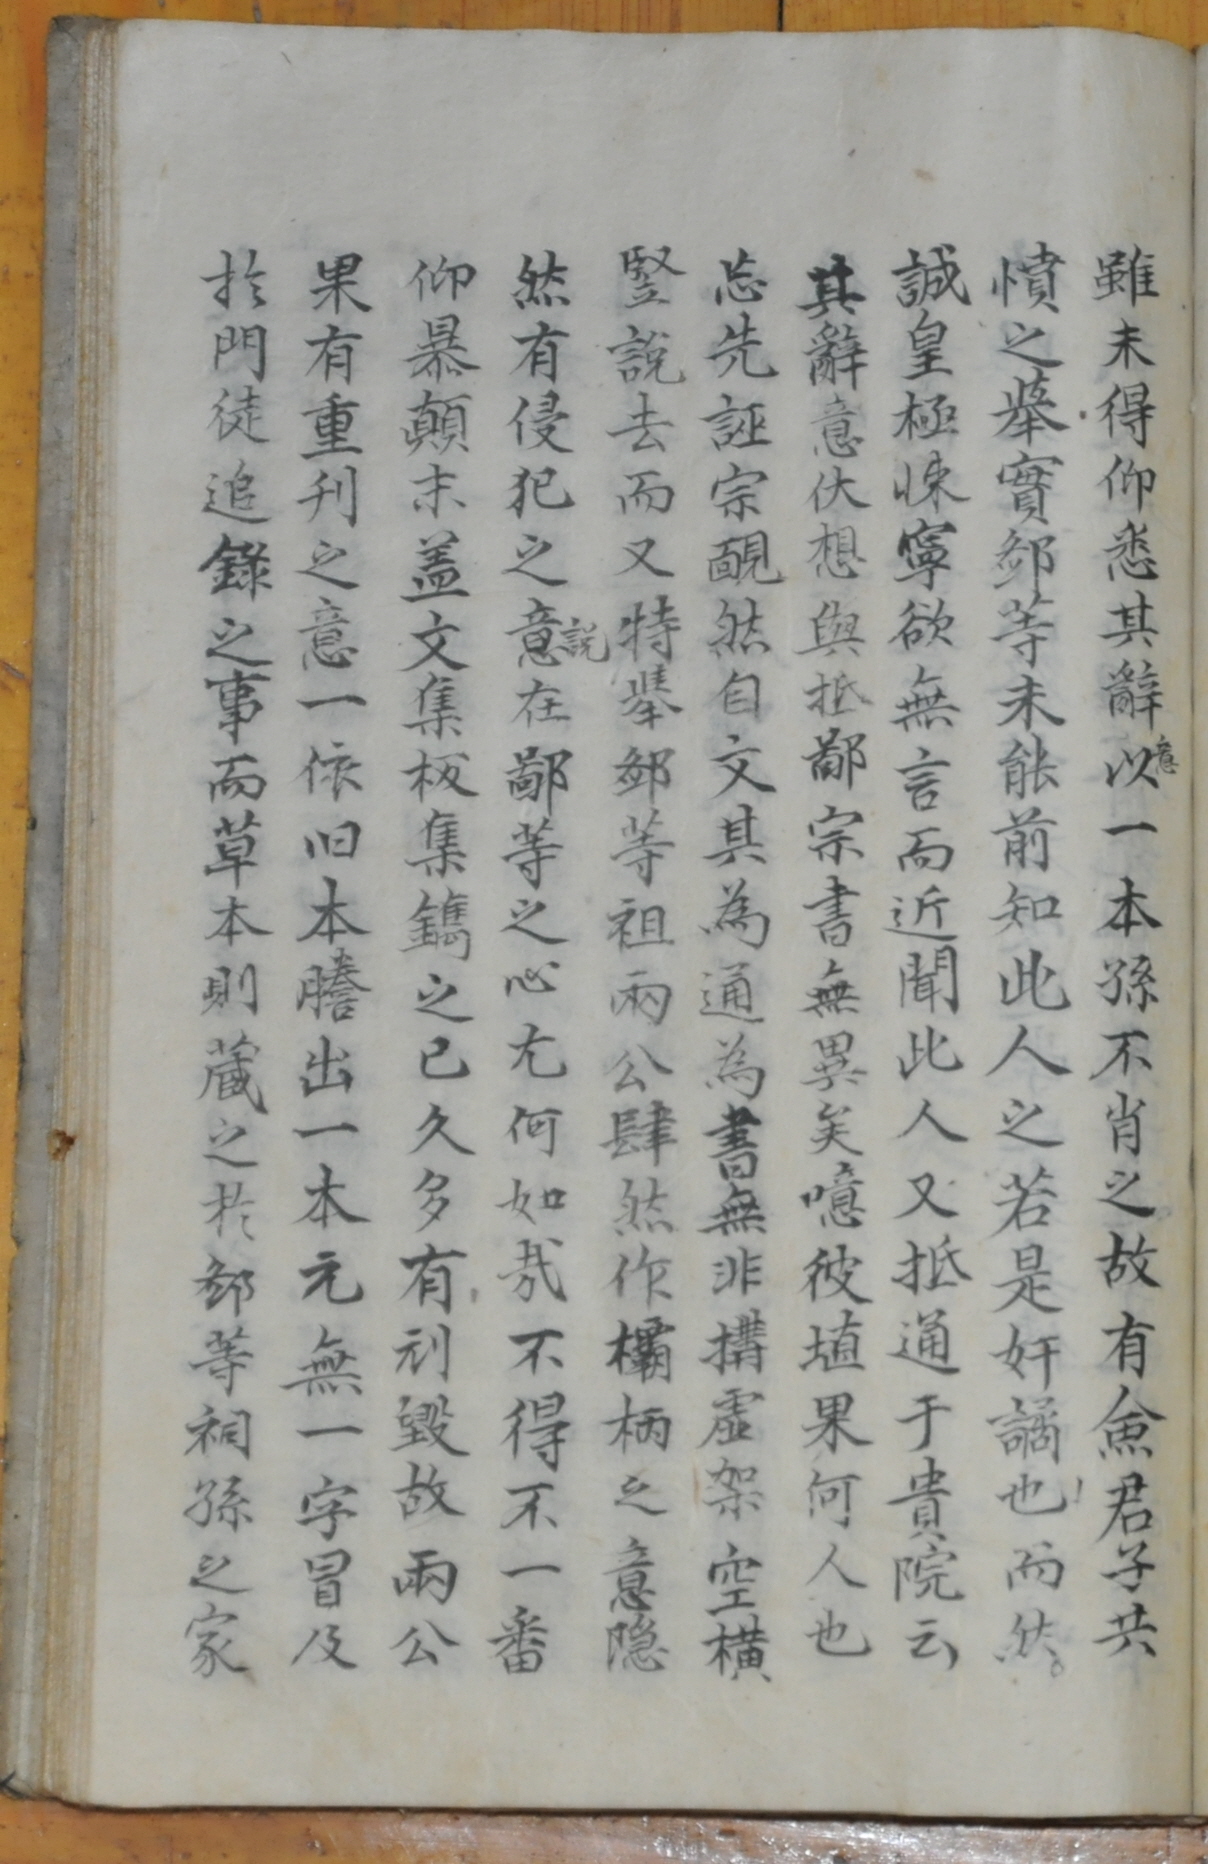 雖未得仰悉其辭意以一本孫不肖之故有僉君子共
憤之擧實鄒等未能前知此人之若是奸譎也而然
誠皇極悚寧欲無言而近聞此人又抵通于貴院云
其辭意伏想與抵鄙宗書無異矣噫彼埴果何人也
忘先誣宗靦然自文其為通為書無非搆虛架空橫
竪說去而又特擧鄒等祖兩公肆然作欛柄之意隐
然有侵犯之意說在鄙等之心尤何如哉不得不一番
仰暴顛末盖文集板集鐫之已久多有刓毀故兩公
果有重刊之意一依旧本謄出一本元無一字冒及
扵門徒追錄之事而草本則蔵之扵鄒等祠孫之家